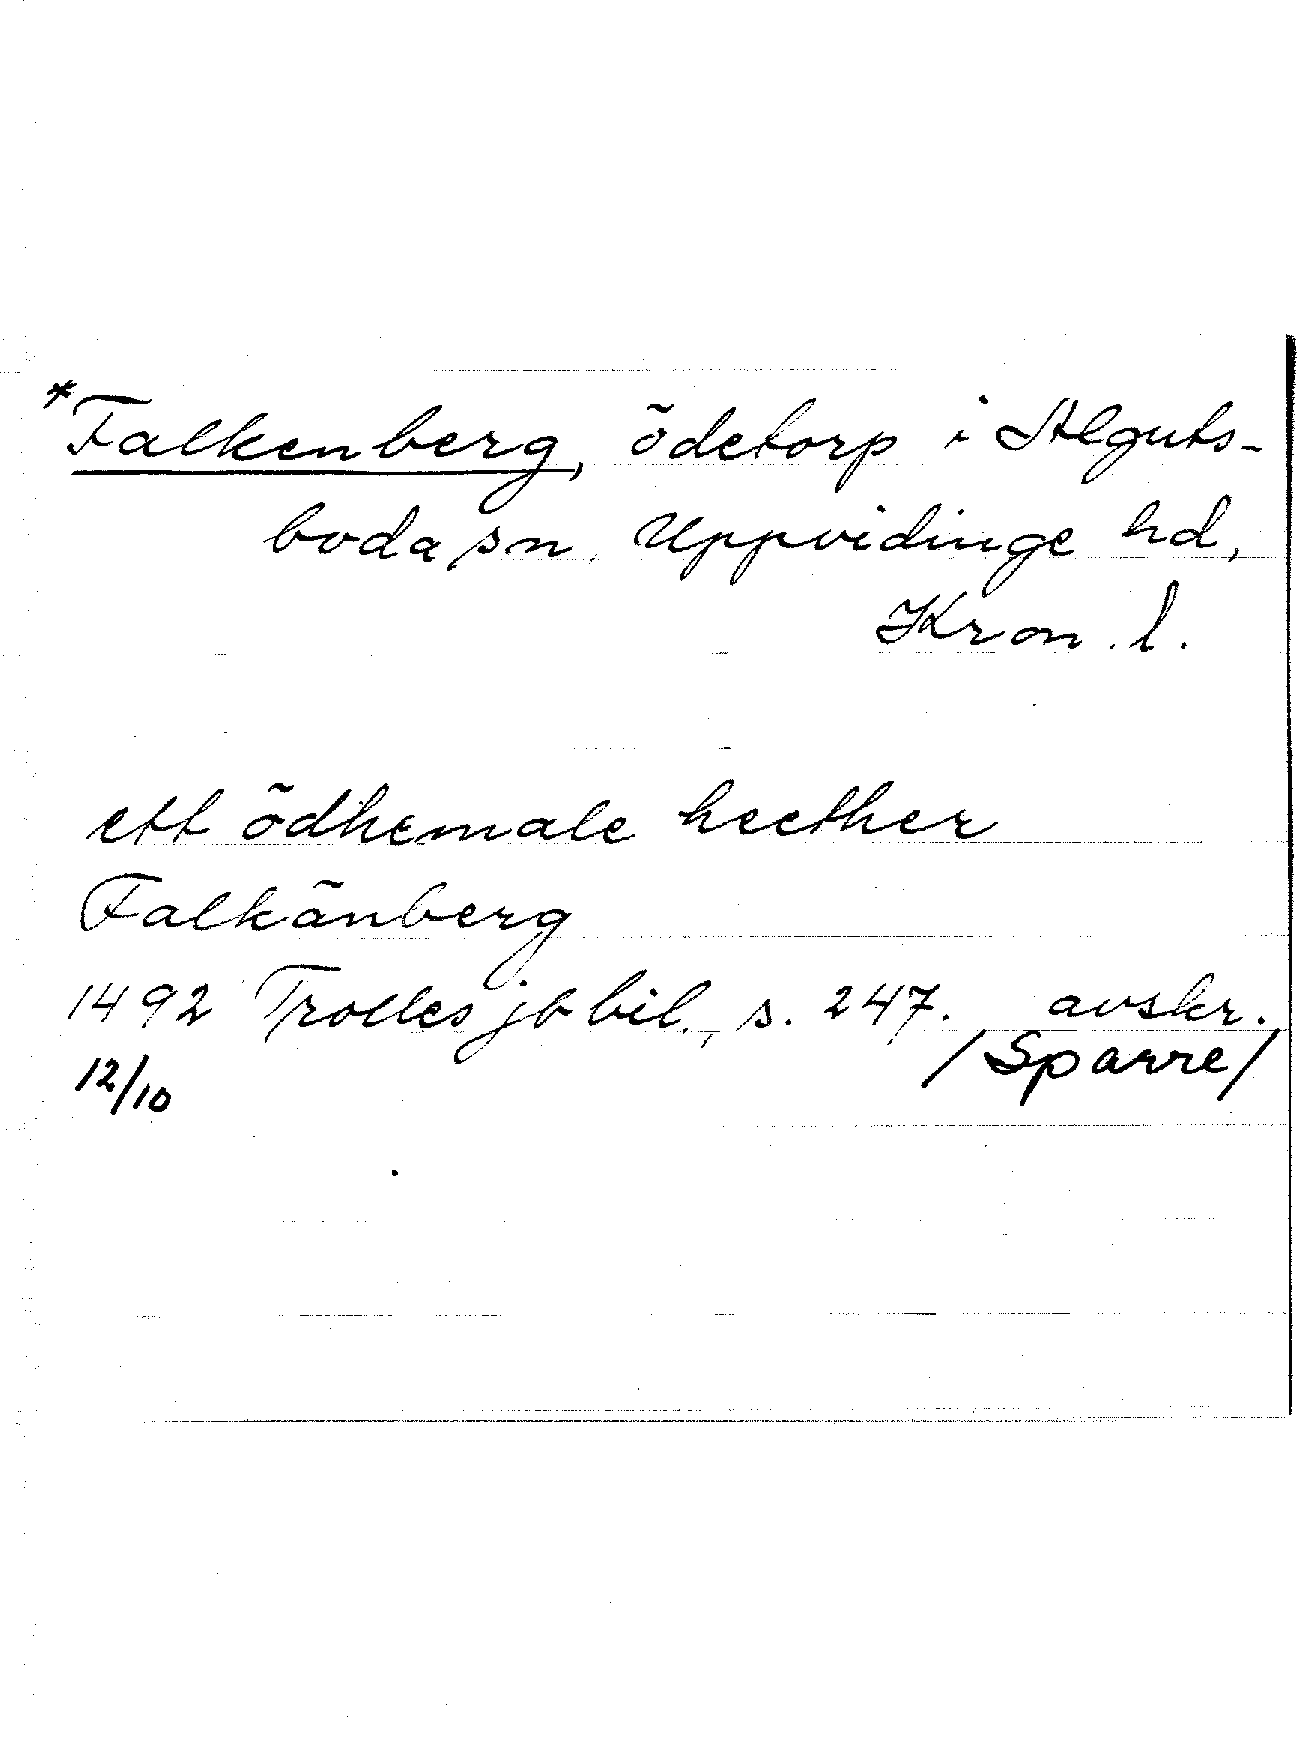 *Falkenberg, ödetorp i Alguts-
boda sn, Uppvidinge hd,
Kron. l.
ett ödhemale heether
Falkänberg
1492 Trolles jb bil., s. 247. avskr.
12/10 /Sparre/